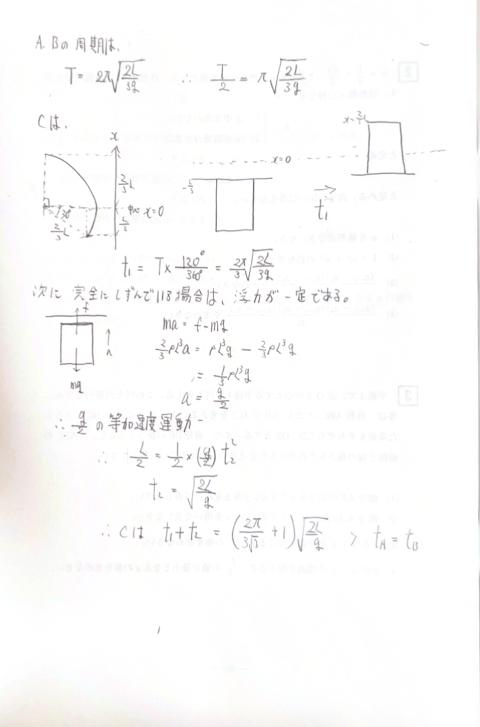 A.Bの周期は、
T = 2π√(2L/3g) ∴ T/2 = π√(2L/3g)
Cは、
x
2/3 L
中心 x=0
L/3
120°
2/3 L
x=0
t₁
t₁ = T × 120°/360° = 2π/3 √(2L/3g)
次に 完全にしずんでいる場合は、浮力が一定である。
f
mg
a
ma = f - mg
2/3 ρL³a = ρL³g - 2/3 ρL³g
= 1/3 ρL³g
a = g/2
∴ g/2 の等加速度運動
∴ L/2 = 1/2 × (g/2) t₂²
t₂ = √(2L/g)
∴ Cは t₁ + t₂ = (2π/3√3 + 1) √(2L/g) > tA = tB